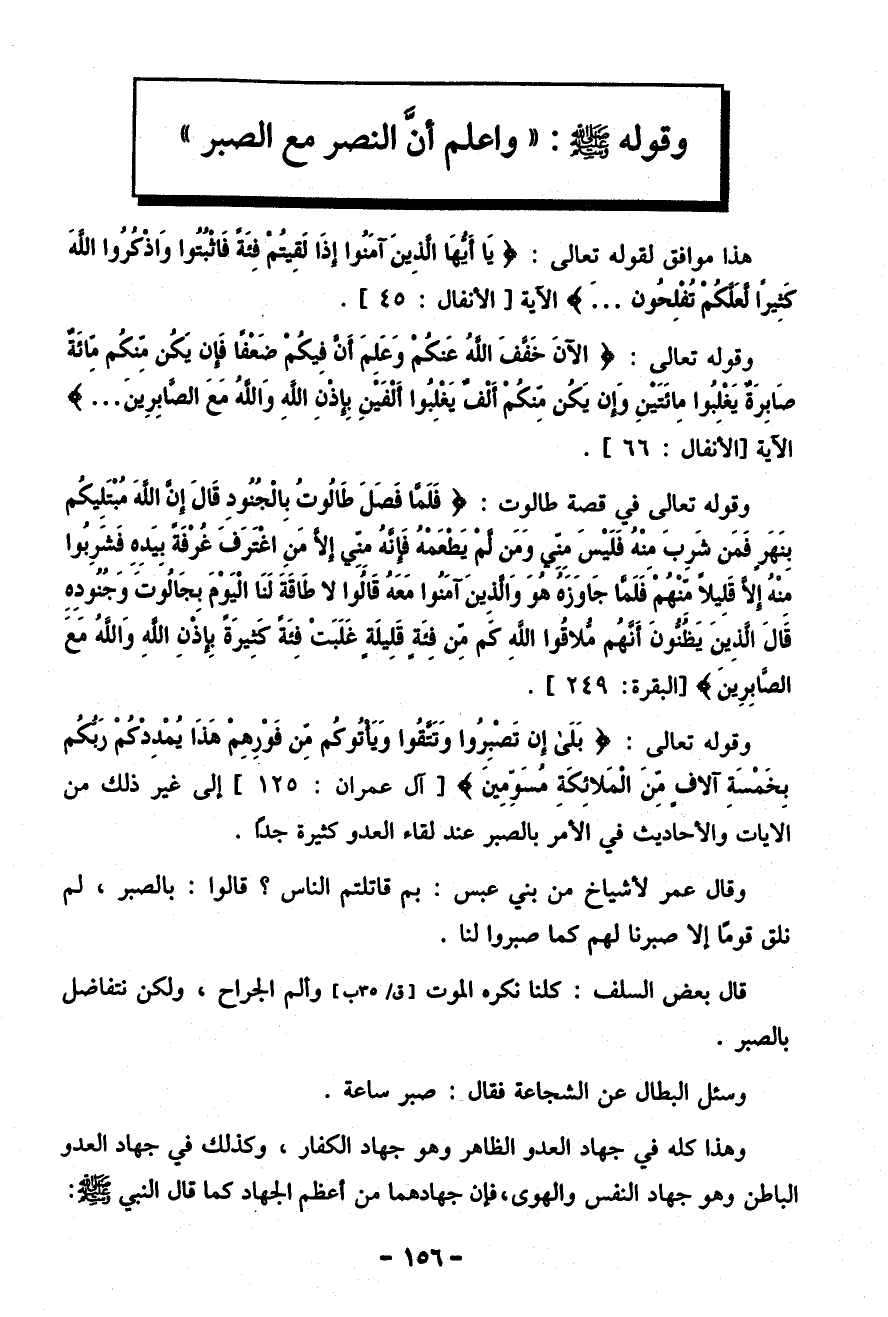 وقوله ﷺ : « واعلم أنَّ النصر مع الصبر »
هذا موافق لقوله تعالى : ﴿ يَا أَيُّهَا الَّذِينَ آمَنُوا إِذَا لَقِيتُمْ فِئَةً فَاثْبُتُوا وَاذْكُرُوا اللَّهَ
كَثِيرًا لَّعَلَّكُمْ تُفْلِحُونَ ... ﴾ الآية [ الأنفال : ٤٥ ] .
وقوله تعالى : ﴿ الآنَ خَفَّفَ اللَّهُ عَنكُمْ وَعَلِمَ أَنَّ فِيكُمْ ضَعْفًا فَإِن يَكُن مِّنكُم مِّائَةٌ
صَابِرَةٌ يَغْلِبُوا مِائَتَيْنِ وَإِن يَكُن مِّنكُمْ أَلْفٌ يَغْلِبُوا أَلْفَيْنِ بِإِذْنِ اللَّهِ وَاللَّهُ مَعَ الصَّابِرِينَ... ﴾
الآية [الأنفال : ٦٦ ] .
وقوله تعالى في قصة طالوت : ﴿ فَلَمَّا فَصَلَ طَالُوتُ بِالْجُنُودِ قَالَ إِنَّ اللَّهَ مُبْتَلِيكُم
بِنَهَرٍ فَمَن شَرِبَ مِنْهُ فَلَيْسَ مِنِّي وَمَن لَّمْ يَطْعَمْهُ فَإِنَّهُ مِنِّي إِلاَّ مَنِ اغْتَرَفَ غُرْفَةً بِيَدِهِ فَشَرِبُوا
مِنْهُ إِلاَّ قَلِيلاً مِّنْهُمْ فَلَمَّا جَاوَزَهُ هُوَ وَالَّذِينَ آمَنُوا مَعَهُ قَالُوا لا طَاقَةَ لَنَا الْيَوْمَ بِجَالُوتَ وَجُنُودِهِ
قَالَ الَّذِينَ يَظُنُّونَ أَنَّهُم مُّلاقُوا اللَّهِ كَم مِّن فِئَةٍ قَلِيلَةٍ غَلَبَتْ فِئَةً كَثِيرَةً بِإِذْنِ اللَّهِ وَاللَّهُ مَعَ
الصَّابِرِينَ ﴾ [البقرة: ٢٤٩ ] .
وقوله تعالى : ﴿ بَلَىٰ إِن تَصْبِرُوا وَتَتَّقُوا وَيَأْتُوكُم مِّن فَوْرِهِمْ هَذَا يُمْدِدْكُمْ رَبُّكُم
بِخَمْسَةِ آلافٍ مِّنَ الْمَلائِكَةِ مُسَوِّمِينَ ﴾ [ آل عمران : ١٢٥ ] إلى غير ذلك من
الايات والأحاديث في الأمر بالصبر عند لقاء العدو كثيرة جدًا .
وقال عمر لأشياخ من بني عبس : بم قاتلتم الناس ؟ قالوا : بالصبر ، لم
نلق قومًا إلا صبرنا لهم كما صبروا لنا .
قال بعض السلف : كلنا نكره الموت [ق/ ٣٥ب] وألم الجراح ، ولكن نتفاضل
بالصبر .
وسئل البطال عن الشجاعة فقال : صبر ساعة .
وهذا كله في جهاد العدو الظاهر وهو جهاد الكفار ، وكذلك في جهاد العدو
الباطن وهو جهاد النفس والهوى، فإن جهادهما من أعظم الجهاد كما قال النبي ﷺ:
- ١٥٦ -